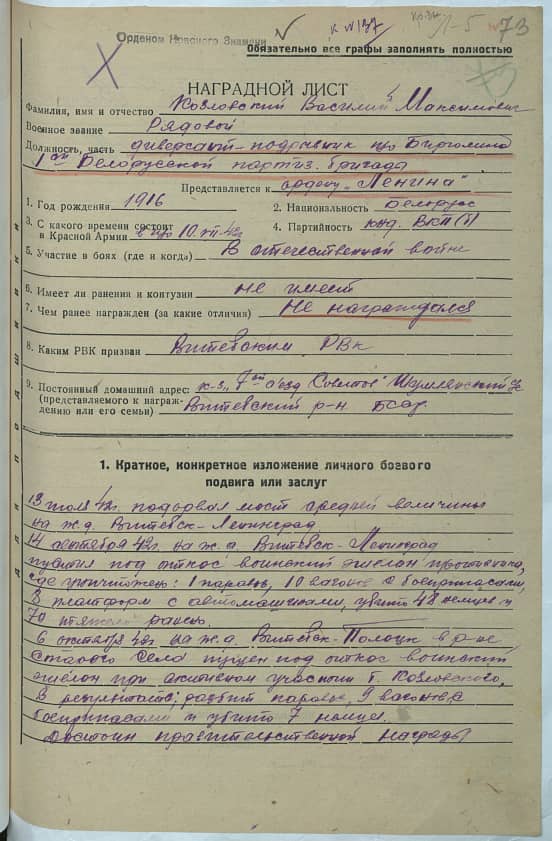 к №137
73
Орденом Невского Знамени
Обязательно все графы заполнять полностью
НАГРАДНОЙ ЛИСТ
Фамилия, имя и отчество Козловский Василий Максимович
Военное звание Рядовой
Должность, часть диверсант-подрывник
1ой Белорусской партиз. бригады
Представляется к ордену „Ленина"
1. Год рождения 1916
2. Национальность Белорус
3. С какого времени состоит
в Красной Армии 10.VII.42г
4. Партийность канд. ВКП(б)
5. Участие в боях (где и когда) В отечественной войне
6. Имеет ли ранения и контузии не имеет
7. Чем ранее награжден (за какие отличия) Не награждался
8. Каким РВК призван Витебским РВК
9. Постоянный домашний адрес: к-з „7ой с'езд Советов"
(представляемого к награж-
дению или его семьи) Витебский р-н БССР
1. Краткое, конкретное изложение личного боевого
подвига или заслуг
13 июля 42г. подорвал мост средней величины
на ж.д. Витебск-Ленинград
14 сентября 42г. на ж.д. Витебск-Ленинград
пустил под откос воинский эшелон противника,
где уничтожено: 1 паровоз, 10 вагонов с боеприпасами,
8 платформ с автомашинами, убито 48 немцев и
70 тяжело ранено.
6 октября 42г на ж.д. Витебск-Полоцк в р-не
Старого Села пущен под откос воинский
эшелон при активном участии т. Козловского,
В результате: разбит паровоз, 9 вагонов с
боеприпасами и убито 7 немцев.
Достоин правительственной награды